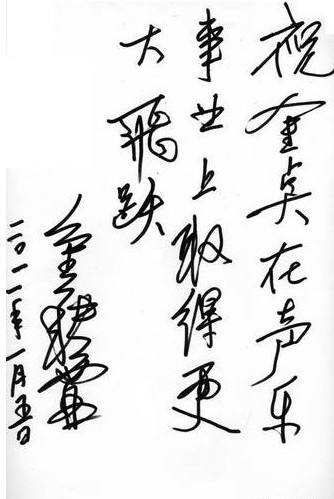 祝金在声乐
事业上取得更
大飛跃
金
二〇一一年一月五日